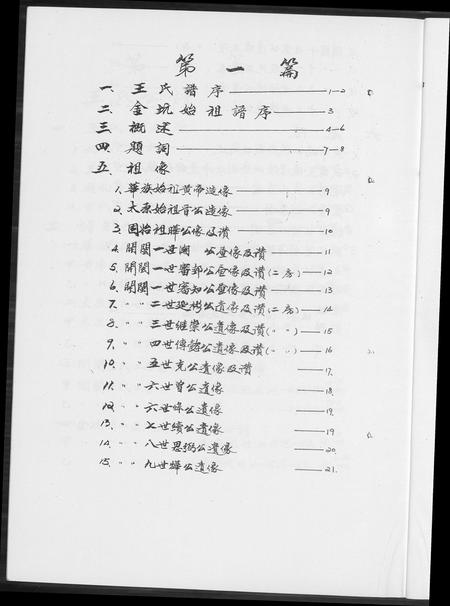 第一篇
一、王氏譜序————1-2
二、金坑始祖譜序————3
三、概述————4-6
四、題詞————7-8
五、祖像
1、華族始祖黄帝造像————9
2、太原始祖晋公造像————9
3、固始祖曄公像及讚————10
4、開閩一世潮 公壘像及讚————11
5、開閩一世審邽公壘像及讚(二房)————12
6、開閩一世審知公壘像及讚————13
7、〃〃二世延彬公遺像及讚(二房)————14
8、〃〃三世继崇公遺像及讚(〃〃)————15
9、〃〃四世傳 公遺像及讚(〃〃)————16
10、〃〃五世克公遺像及讚————17
11、〃〃六世曾公遺像————18
12、〃〃六世 公遺像————19
13、〃〃七世 公遺像————19
14、〃〃八世思 公遺像————20
15、〃〃九世 公遺像————21